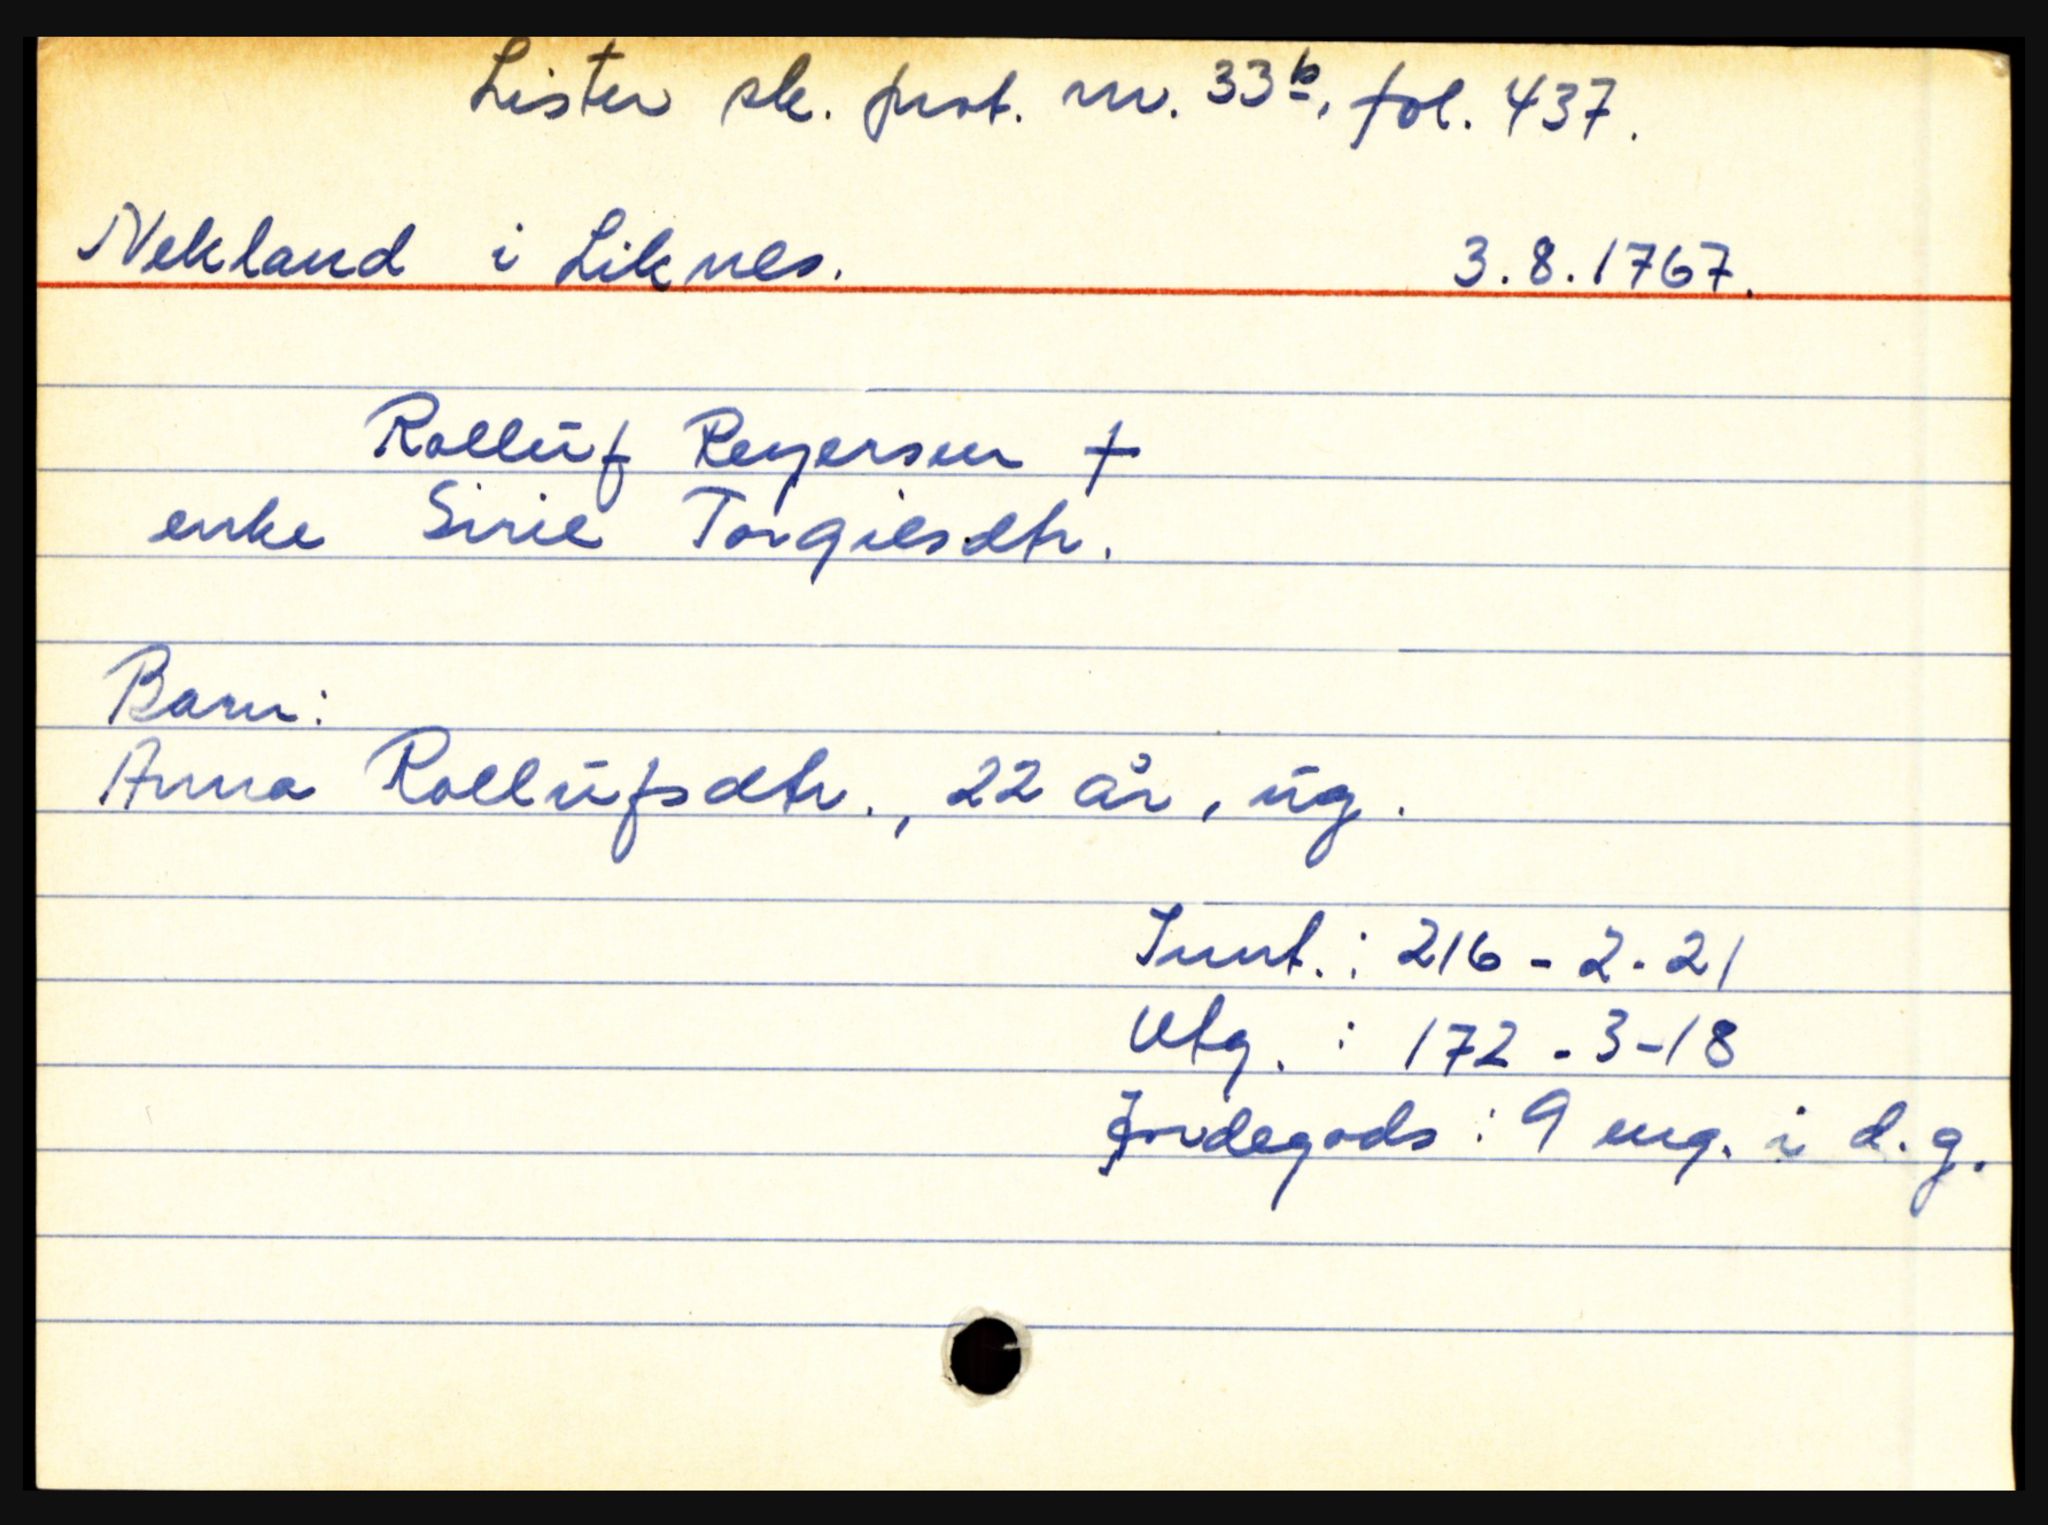 Lister sk. prot. nr. 33b, fol. 437.
Nekland i Liknes. 3.8.1767.
Rolluf Reyersen †
enke Sirie Torgiesdtr.
Barn:
Anna Rollufsdtr., 22 år, ug.
Innt.: 216 - 2 - 21
Utg. : 172 - 3 - 18
Jordegods: 9 eng. i d. g.